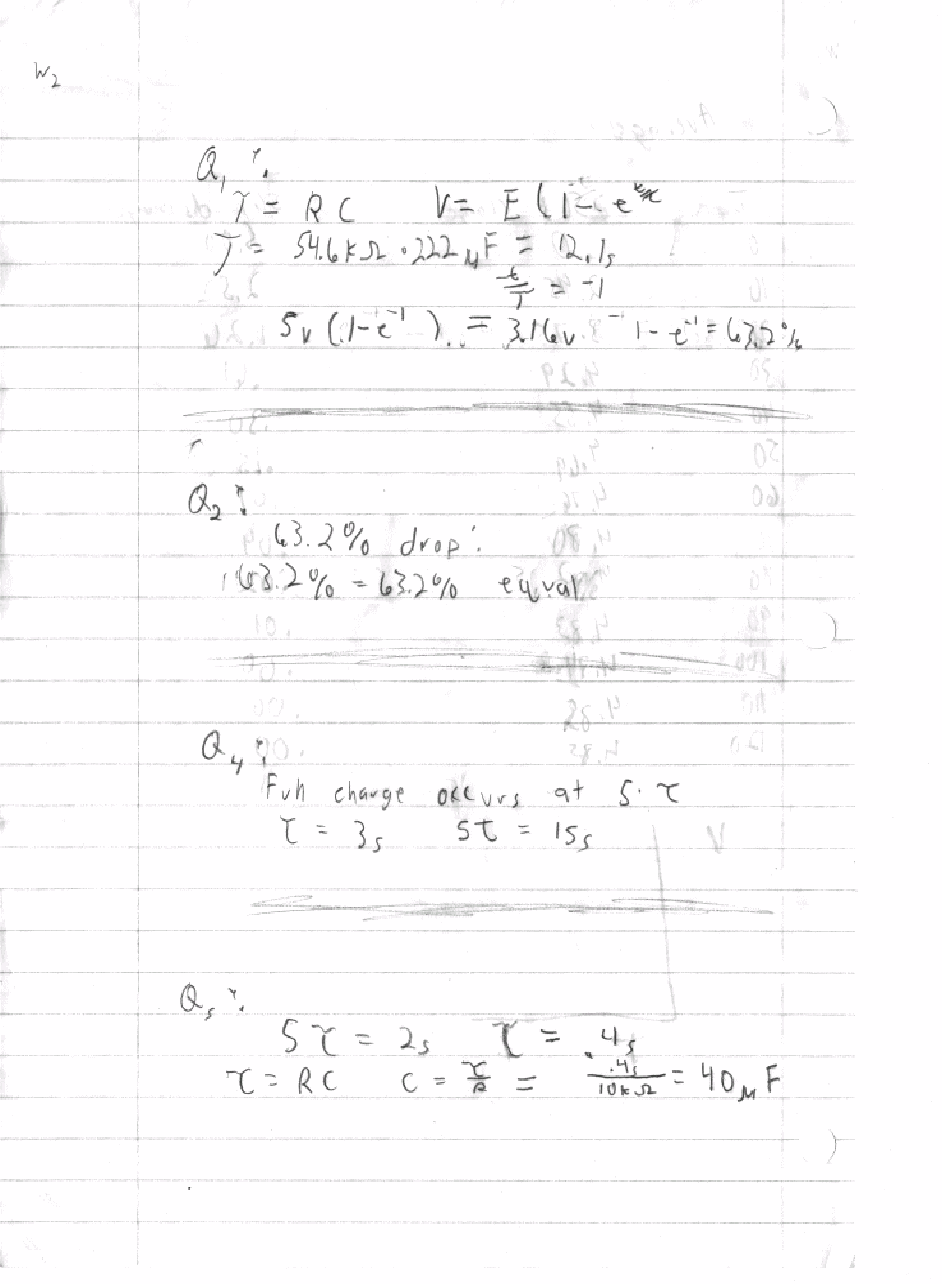 W2
Q1:
τ = RC V = E(1 - e
τ = 54.6kΩ · 222μF = 12.1s
t/τ = -1
5v (1-e^-1) = 3.16v 1 - e^-1 = 63.2%
Q2:
63.2% drop.
63.2% = 63.2% equal
Q4:
Full charge occurs at 5·τ
τ = 3s 5τ = 15s
Q5:
5τ = 2s τ = .4s
τ = RC C = τ/R = .4s/10kΩ = 40μF